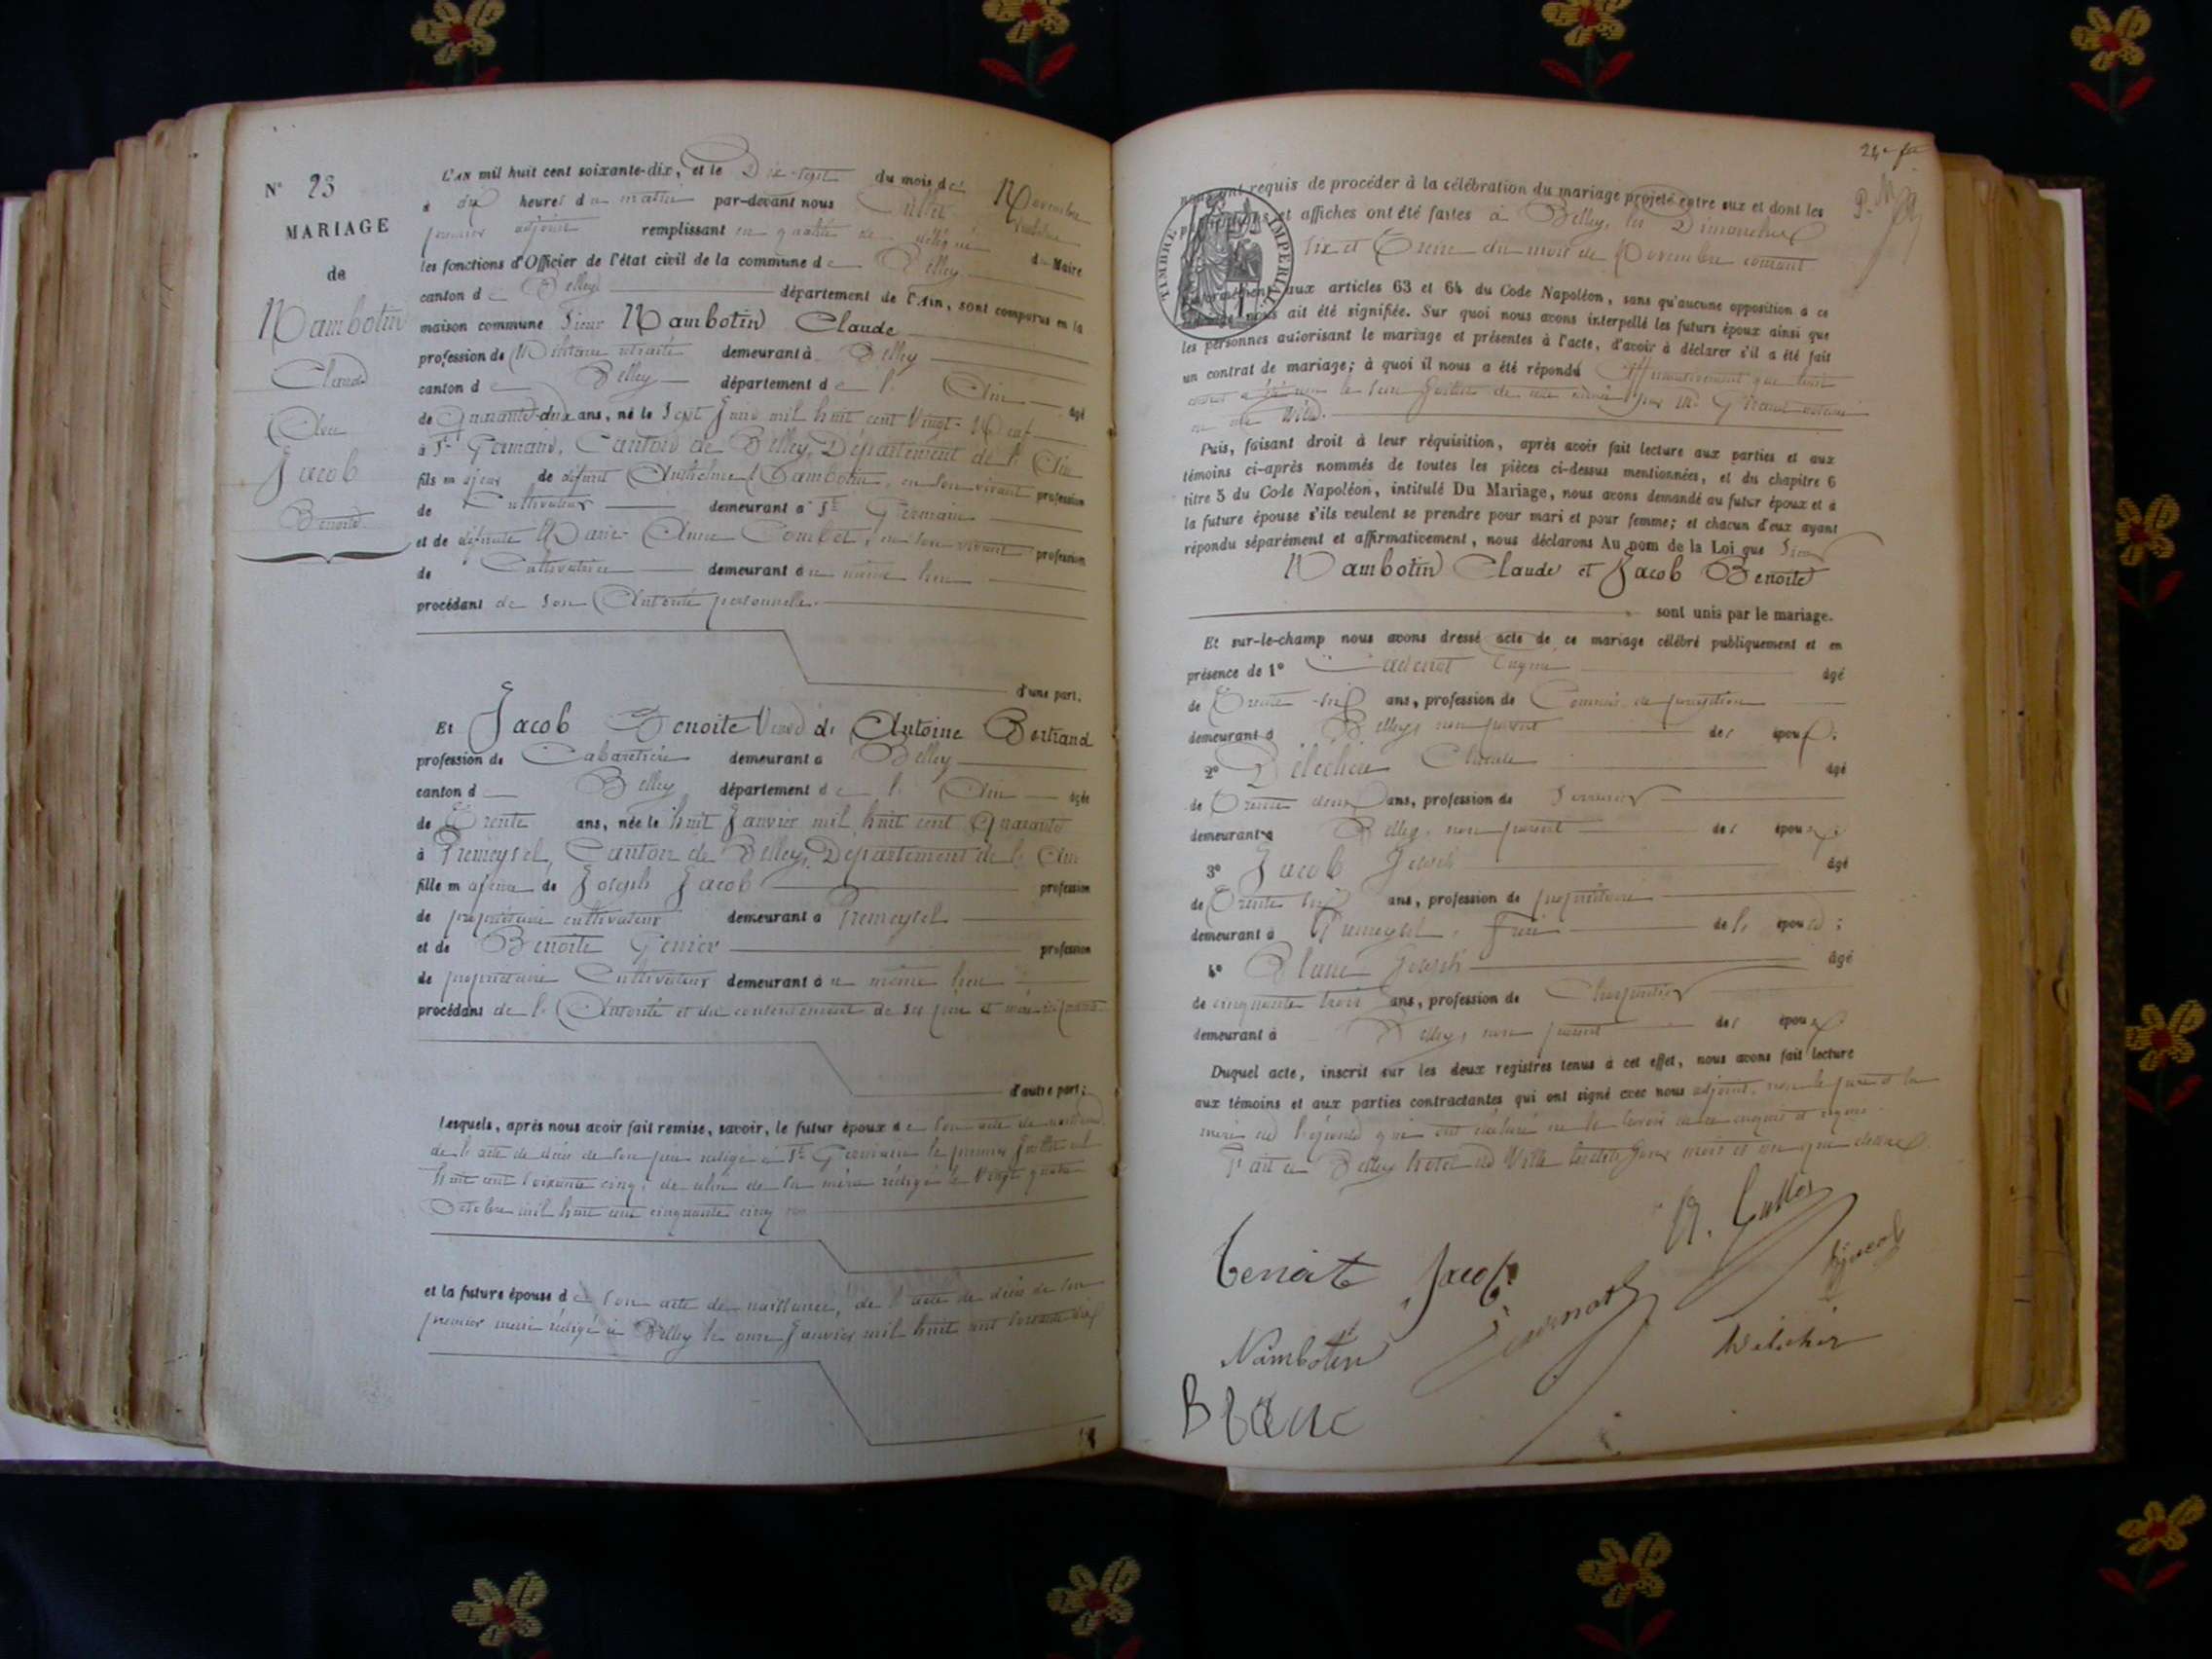 N° 23
MARIAGE
de
Nambotin
Claude
Avec
Jacob
Benoite
L'AN mil huit cent soixante-dix, et le Dix-sept du mois de Novembre
à dix heures du matin par-devant nous
premier adjoint remplissant en qualité de délégué du Maire
les fonctions d'Officier de l'état civil de la commune de Belley
canton de Belley département de l'Ain, sont comparus en la
maison commune Sieur Nambotin Claude
profession de Militaire retraité demeurant à Belley
canton de Belley département de l'Ain âgé
de Quarante-deux ans, né le Sept Juin mil huit cent Vingt-Neuf
à St Germain, Canton de Belley, Département de l'Ain
fils majeur de défunt Anthelme Nambotin, en son vivant profession
de Cultivateur demeurant à St Germain
et de défunte Marie-Anne Combet, en son vivant profession
de Cultivatrice demeurant au même lieu
procédant de son Autorité personnelle.
d'une part.
Et Jacob Benoite Veuve de Antoine Bertrand
profession de Cabaretière demeurant à Belley
canton d Belley département de l'Ain âgée
de Trente ans, née le huit Janvier mil huit cent Quarante
à Premeysel, Canton de Belley, Département de l'Ain
fille majeure de Joseph Jacob profession
de propriétaire cultivateur demeurant à Premeysel
et de Benoite Genier profession
de propriétaire Cultivateur demeurant au même lieu
procédant de l'Autorité et du consentement de ses père et mère
d'autre part;
Lesquels, après nous avoir fait remise, savoir, le futur époux de son acte de naissance
de l'acte de décès de son père rédigé à St Germain le premier Juillet mil
huit cent soixante cinq, de celui de sa mère rédigé le Vingt quatre
Octobre mil huit cent cinquante cinq
et la future épouse de son acte de naissance, de l'acte de décès de son
premier mari rédigé à Belley le onze Janvier mil huit cent soixante dix
24e
nous ont requis de procéder à la célébration du mariage projeté entre eux et dont les
publications et affiches ont été faites à Belley, les Dimanches
Six et Treize du mois de Novembre courant
TIMBRE IMPÉRIAL
conformément aux articles 63 et 64 du Code Napoléon, sans qu'aucune opposition à ce
mariage nous ait été signifiée. Sur quoi nous avons interpellé les futurs époux ainsi que
les personnes autorisant le mariage et présentes à l'acte, d'avoir à déclarer s'il a été fait
un contrat de mariage; à quoi il nous a été répondu Affirmativement que leur
contrat a été reçu le par Me notaire
en cette Ville.
Puis, faisant droit à leur réquisition, après avoir fait lecture aux parties et aux
témoins ci-après nommés de toutes les pièces ci-dessus mentionnées, et du chapitre 6
titre 5 du Code Napoléon, intitulé Du Mariage, nous avons demandé au futur époux et à
la future épouse s'ils veulent se prendre pour mari et pour femme; et chacun d'eux ayant
répondu séparément et affirmativement, nous déclarons Au nom de la Loi que Sieur
Nambotin Claude et Jacob Benoite
sont unis par le mariage.
Et sur-le-champ nous avons dressé acte de ce mariage célébré publiquement et en
présence de 1° Eugène âgé
de Trente-six ans, profession de Commis de perception
demeurant à Belley, non parent des époux;
2° Claude âgé
de Trente deux ans, profession de Serrurier
demeurant à Belley, non parent des époux.
3° Jacob Joseph âgé
de Trente six ans, profession de propriétaire
demeurant à Premeysel, Frère de l'épouse;
4° Blanc Joseph âgé
de cinquante trois ans, profession de Charpentier
demeurant à Belley, non parent des époux
Duquel acte, inscrit sur les deux registres tenus à cet effet, nous avons fait lecture
aux témoins et aux parties contractantes qui ont signé avec nous adjoint, non le père et la
mère de l'épouse qui ont déclaré ne le savoir de ce enquis et requis.
Fait à Belley hôtel de Ville lesdits jour mois et an que dessus.
benoite Jacob
Nambotin
Blanc